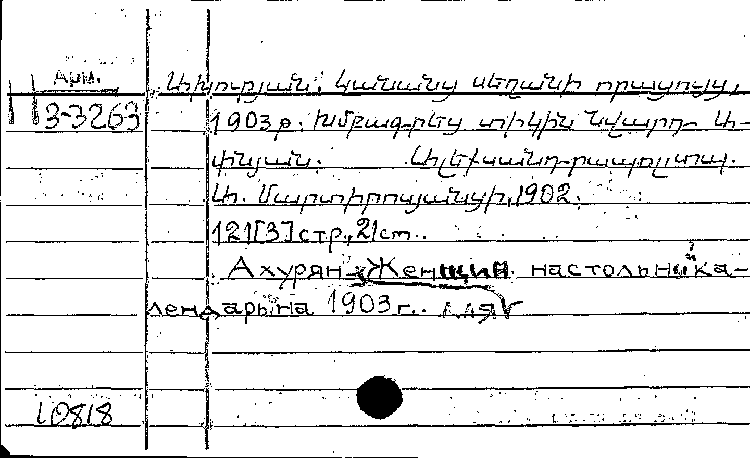 Арм.
П 3-3263
Ախուրյան: Կանանց սեղանի օրացույց,
1903 թ. Խմբագրեց տիկին Նվարդ Ա-
փնյան. Ալեքսանդրապոլ, տպ.
Ա. Մարտիրոսյանցի, 1902.
121[3] стр., 21 см.
Ахурян - Женщин. настольный ка-
лендарь на 1903 г. для
10818